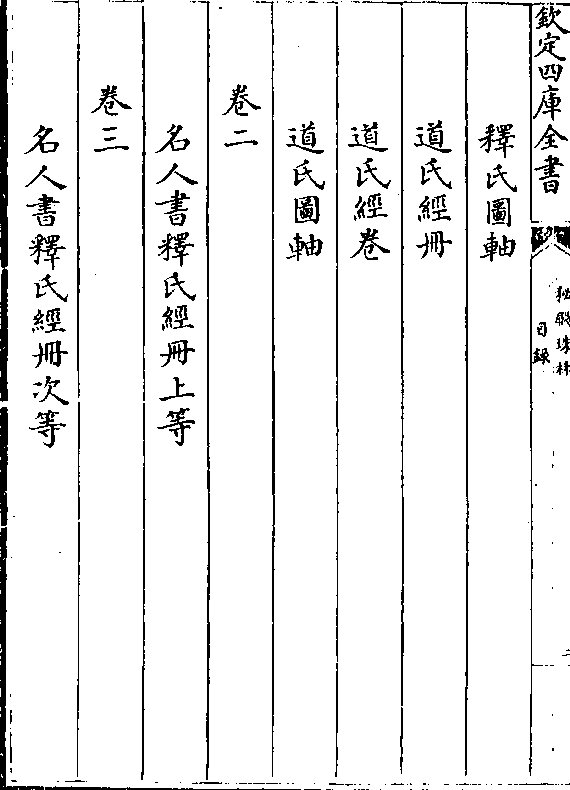 欽定四庫全書
秘殿珠林
目録
二
釋氏圖軸
道氏經冊
道氏經卷
道氏圖軸
卷二
名人書釋氏經冊上等
卷三
名人書釋氏經冊次等